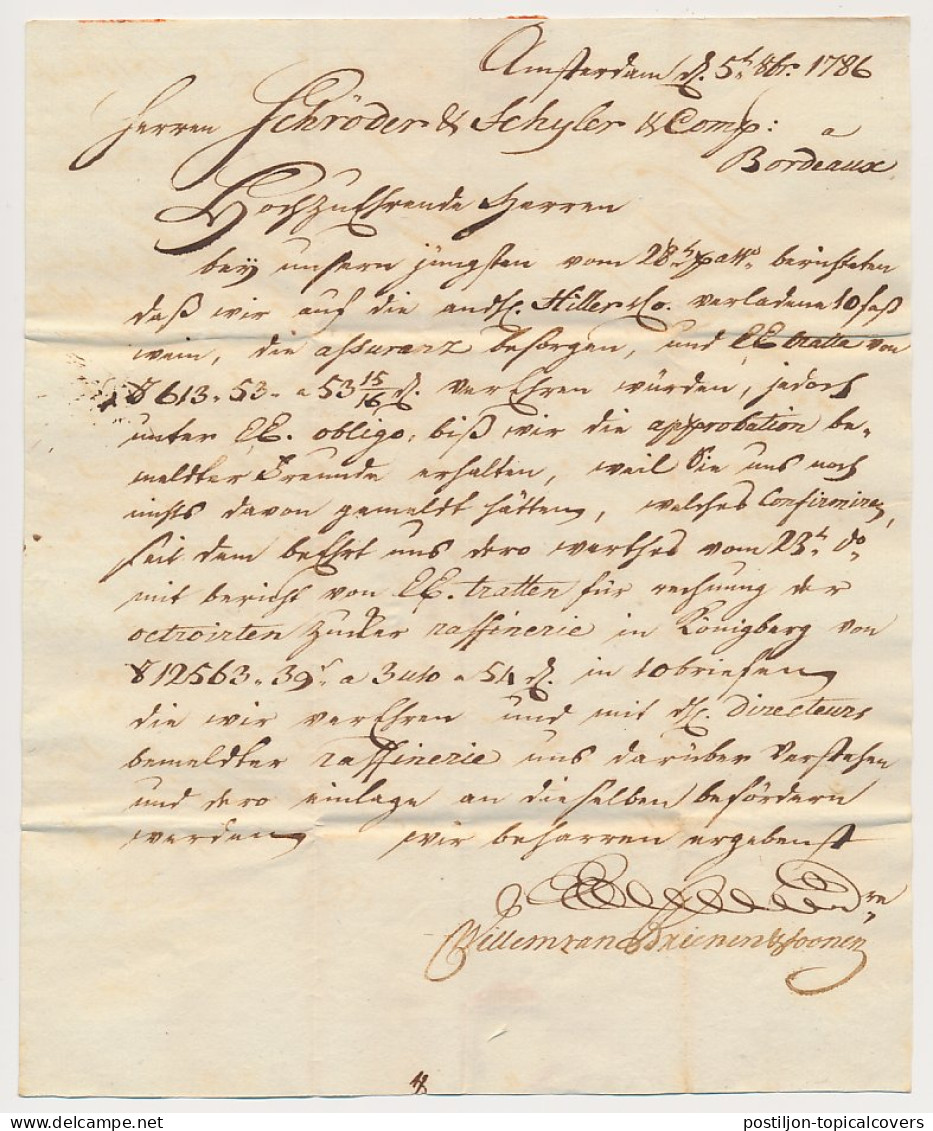 Amsterdam d. 5t. 8br. 1786
Herren Schröder & Schyler & Comp: a
Bordeaux
HochzuEhrende Herren
bey unsern jüngsten vom 28t. passo. berichteten
daß wir auf die an dh. Hiller & Co. verladene 10 faß
wein, die assuranz besorgen, und EE tratta von
613„53„ a 53 15/16 d. verEhren würden, jedoch
unter EE. obligo, biß wir die approbation be-
meldter Freunde erhalten, weil Sie uns noch
nichts davon gemeldt hätten, welches Confirmiren,
seit dem beEhrt uns dero werthes vom 23t. do.
mit bericht von EE. tratten für rechnung der
octroirten Zucker raffinerie in Königberg von
12563„39 a 3 uso a 54 d. in 10 briefen
die wir verEhren und mit dh. Directeurs
bemeldter raffinerie uns darüber verstehen
und dero einlage an dieselben befördern
werden wir beharren ergebenst
Willem van Brienen & Soonen
postiljon-topicalcovers